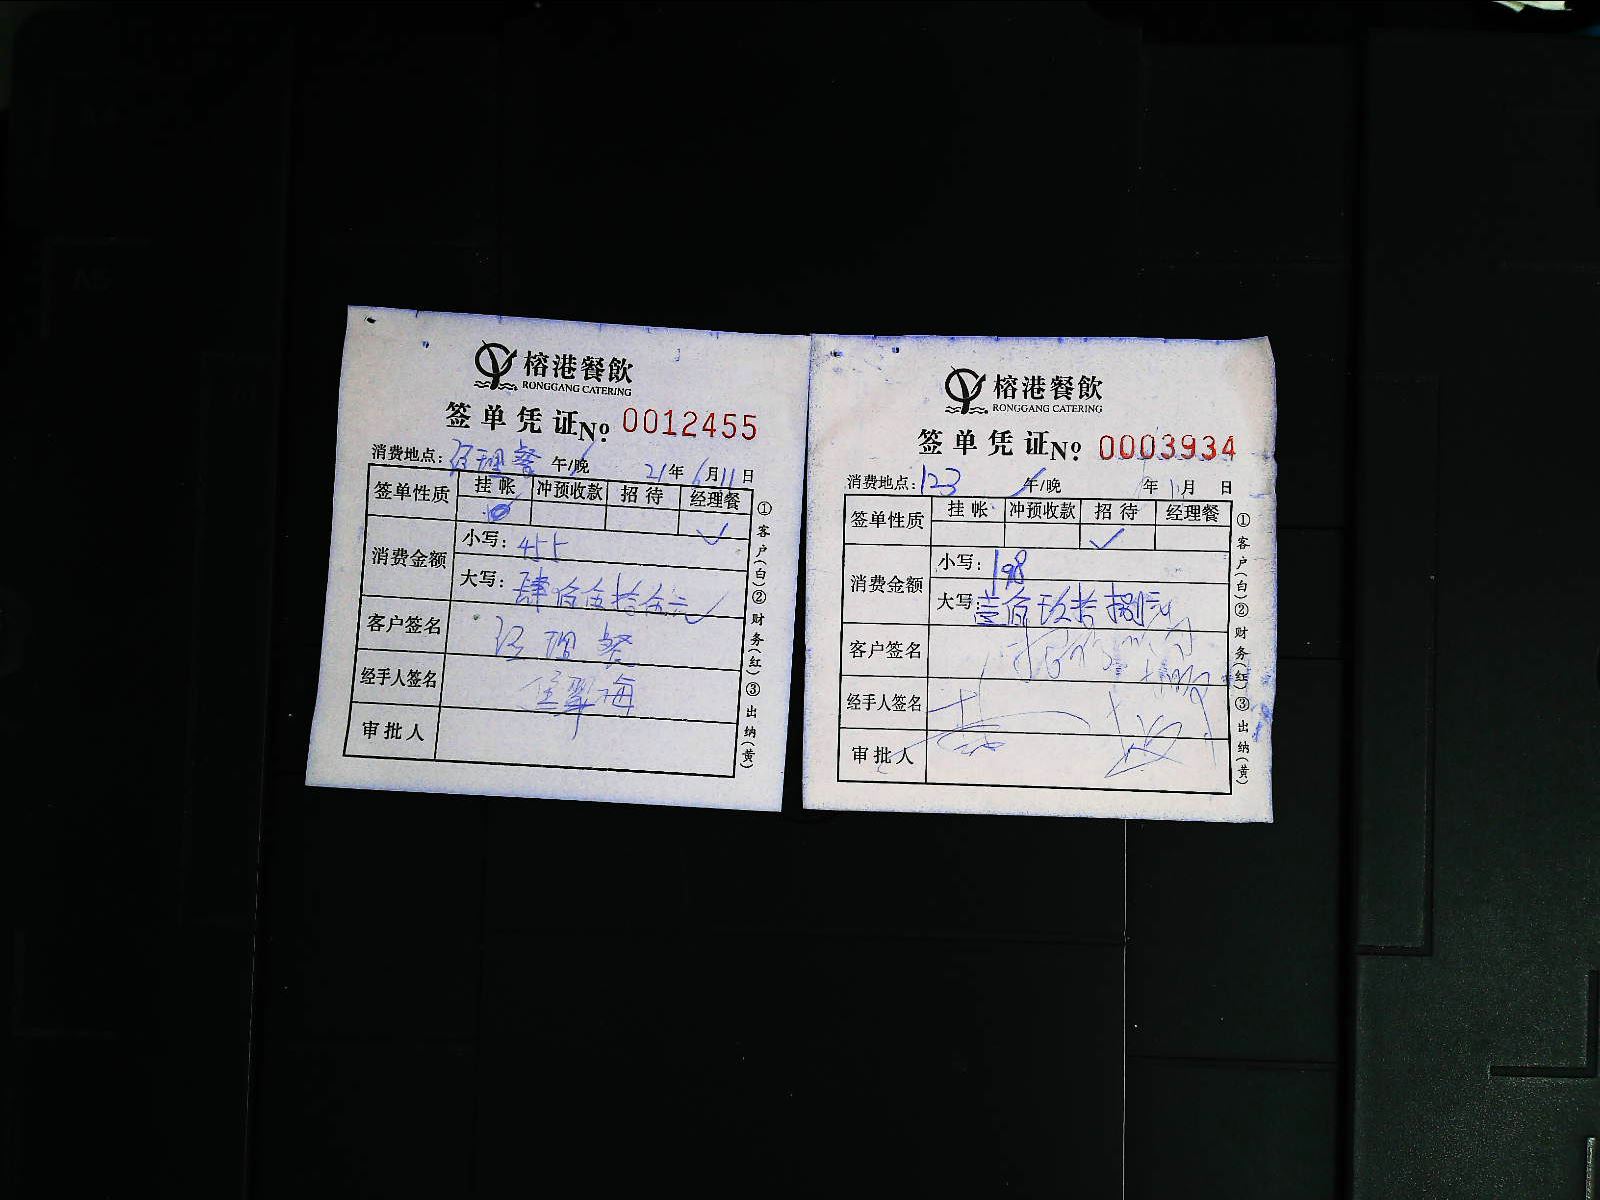 榕港餐飲
RONGGANG CATERING
签单凭证№ 0012455
消费地点：经理餐 午/晚 21年6月11日
签单性质 挂帐 冲预收款 招待 经理餐
✓
消费金额 小写：455
大写：肆佰伍拾伍元
客户签名 经理餐
经手人签名
审批人
①客户(白)②财务(红)③出纳(黄)
榕港餐飲
RONGGANG CATERING
签单凭证№ 0003934
消费地点：123 午/晚 年 月 日
签单性质 挂帐 冲预收款 招待 经理餐
✓
消费金额 小写：198
大写：壹佰玖拾捌元
客户签名
经手人签名
审批人
①客户(白)②财务(红)③出纳(黄)